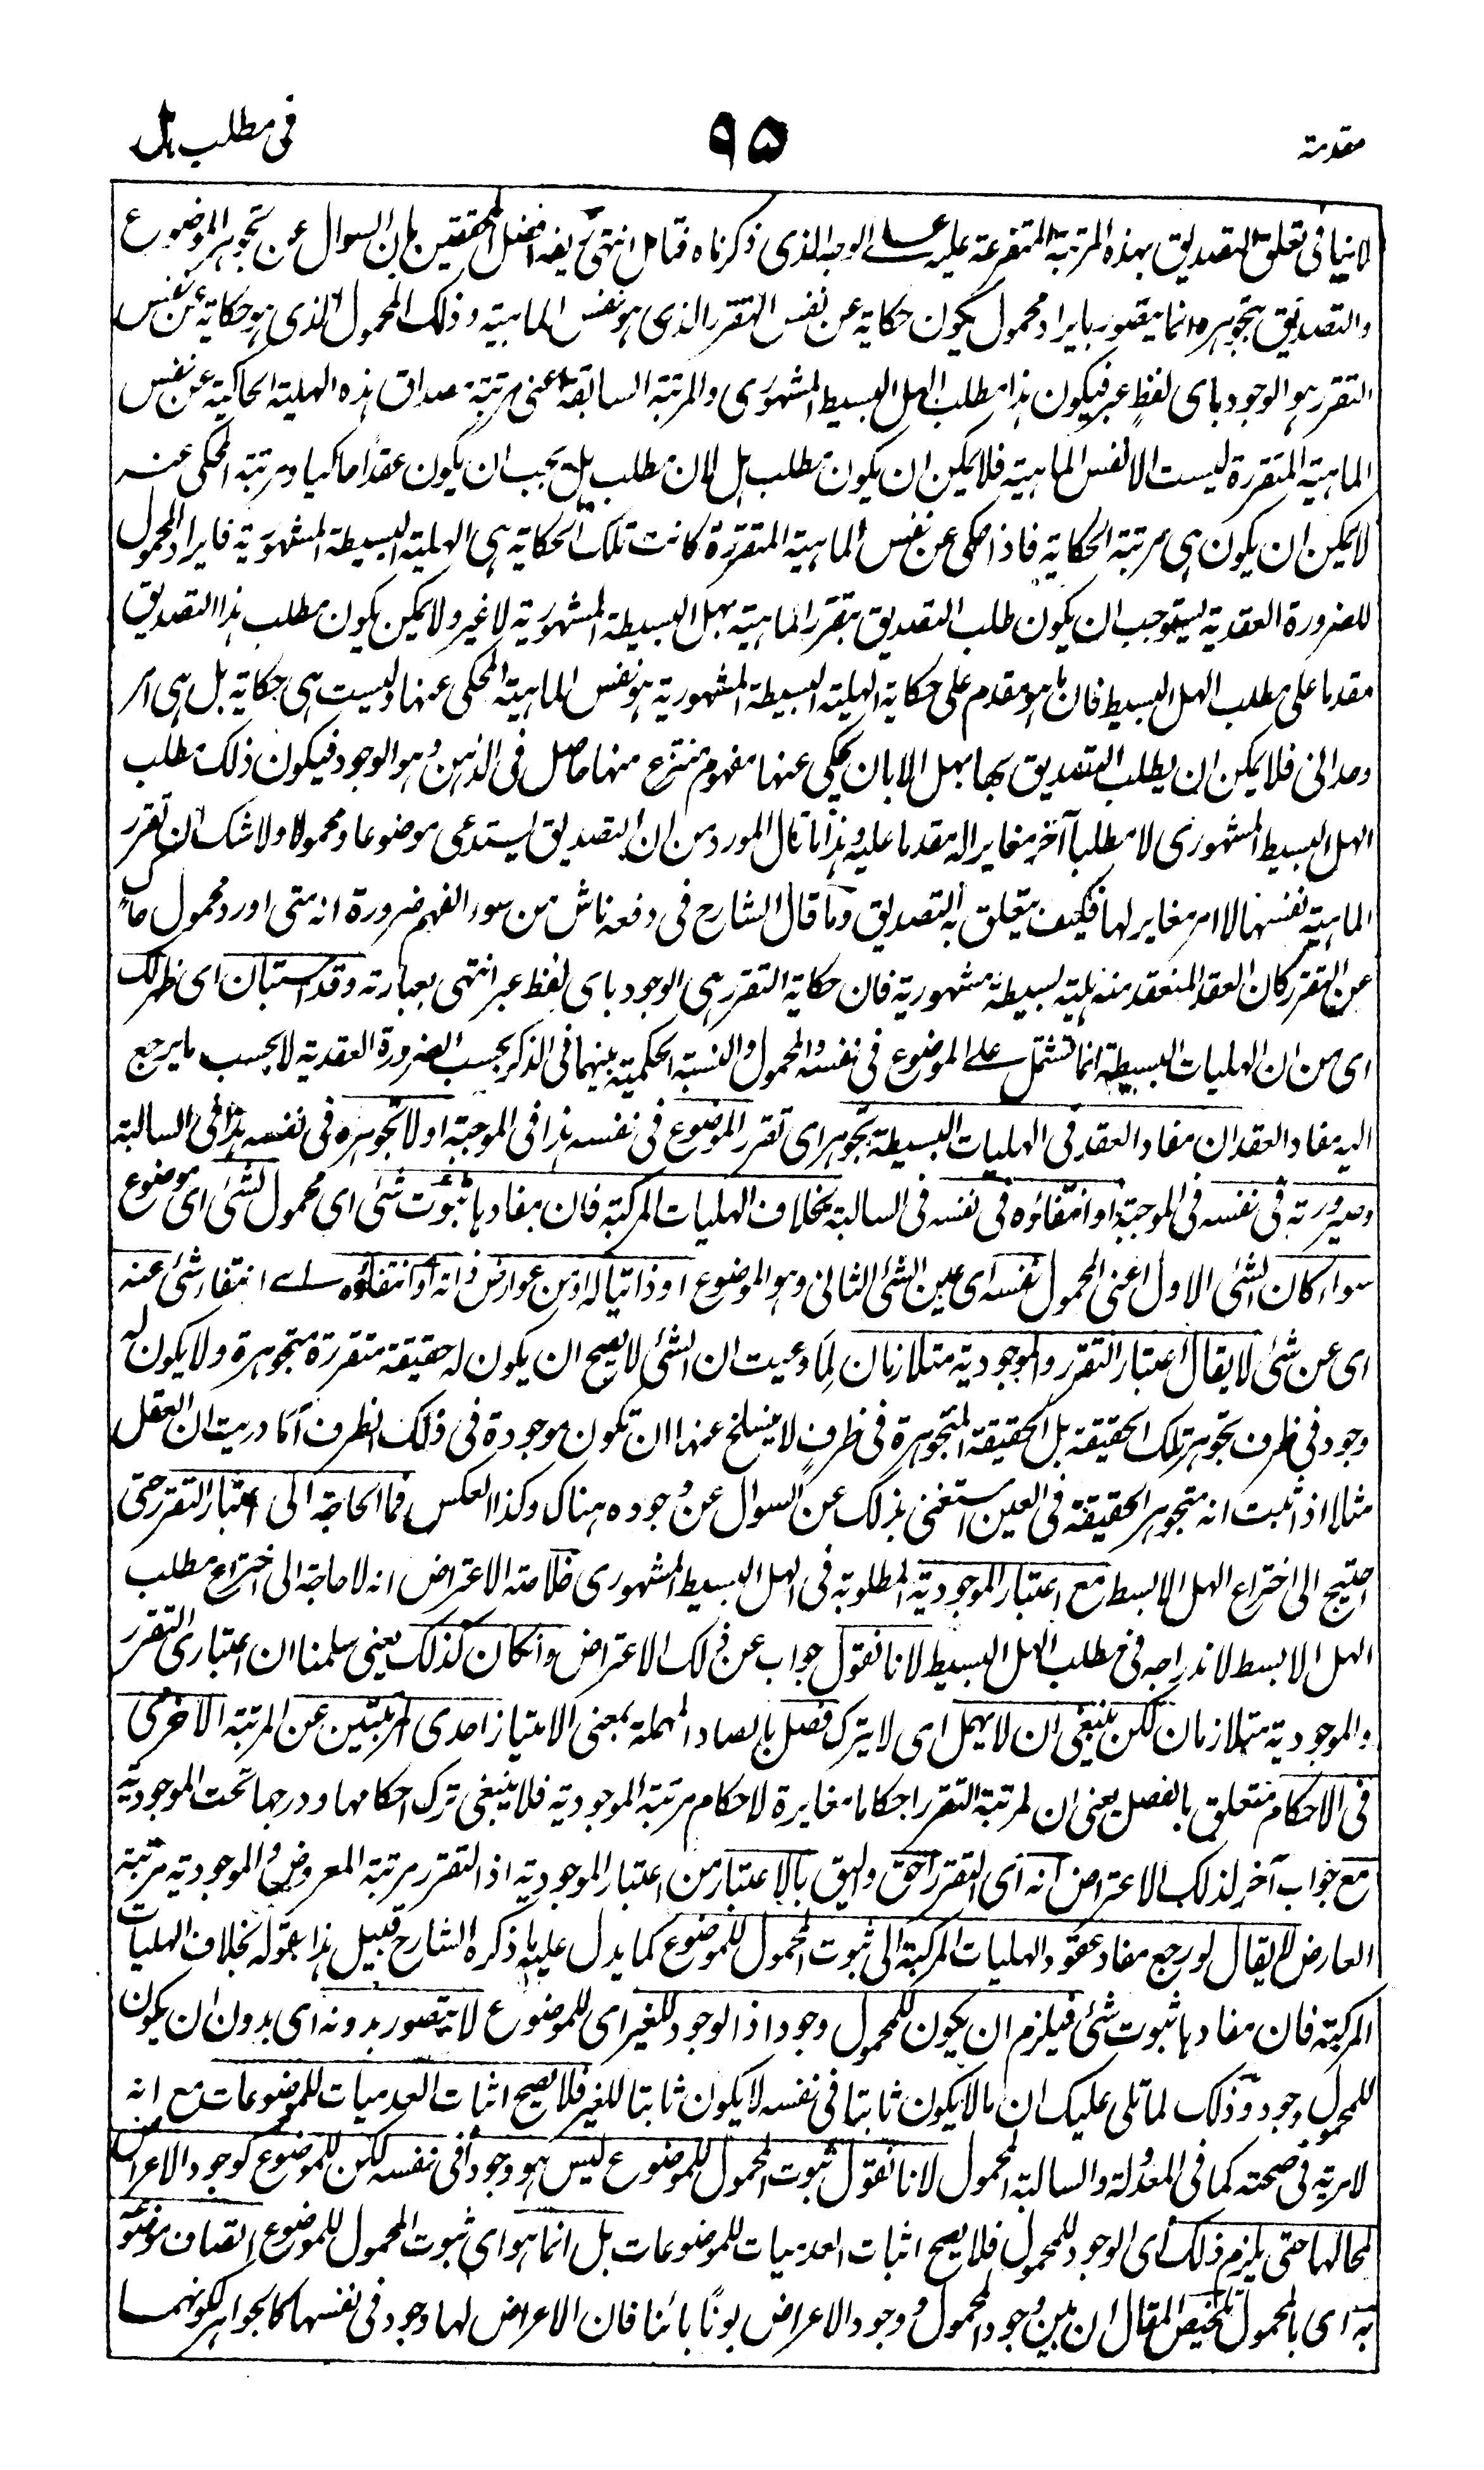 مقدمة
٩٥
فى مطلب هل
لا ينافى تعلق التصديق بهذه المرتبة المتفرعة عليه على الوجه الذى ذكرناه فتأمل انتهى زيفه افضل المحققين بان السوال عن تجوهر الموضوع
والتصديق بتجوهره انما يتصور بايراد محمول يكون حكاية عن نفس التقرر الذى هو نفس الماهية وذلك المحمول الذى هو حكاية عن نفس
التقرر هو الوجود باى لفظ عبر فيكون هذا مطلب الهل البسيط المشهورى والمرتبة السابقة اعنى مرتبة مصداق هذه الهلية الحاكية عن نفس
الماهية المتقررة ليست الا نفس الماهية فلا يمكن ان يكون مطلب هل لان مطلب هل يجب ان يكون عقدا حاكيا ومرتبة المحكى عنه
لا يمكن ان يكون هى مرتبة الحكاية فاذا حكى عن نفس الماهية المتقررة كانت تلك الحكاية هى الهلية البسيطة المشهورية فايراد المحمول
للضرورة العقدية يستوجب ان يكون طلب التصديق بتقرر الماهية بهل البسيطة المشهورية لا غير ولا يمكن يكون مطلب هذا التصديق
مقدما على مطلب الهل البسيط فان ما هو مقدم على حكاية الهلية البسيطة المشهورية هو نفس الماهية المحكى عنها وليست هى حكاية بل هى امر
وحدانى فلا يمكن ان يطلب التصديق بها بهل الا بان يحكى عنها مفهوم منتزع منها حاصل فى الذهن وهو الوجود فيكون ذلك مطلب
الهل البسيط المشهورى لا مطلبا آخر مغايرا له مقدما عليه وهذا ما قال المورد من ان التصديق يستدعى موضوعا ومحمولا ولا شك ان تقرر
الماهية نفسها لا امر مغاير لها فكيف يتعلق به التصديق وما قال الشارح فى دفعه ناش من سوء الفهم ضرورة انه متى اورد محمول حاك
عن التقرر كان العقد المنعقد منه هلية بسيطة مشهورية فان حكاية التقرر هى الوجود باى لفظ عبر انتهى بعبارته وقد استبان اى ظهر لك
اى من ان الهليات البسيطة انما تشتمل على الموضوع فى نفسه والمحمول والنسبة الحكمية بينهما فى الذكر بحسب الضرورة العقدية لا بحسب ما يرجع
اليه مفاد العقد ان مفاد العقد فى الهليات البسيطة تجوهر اى تقرر الموضوع فى نفسه هذا فى الموجبة او لا تجوهره فى نفسه هذا فى السالبة
وصيرورته فى نفسه فى الموجبة او انتفاؤه فى نفسه فى السالبة بخلاف الهليات المركبة فان مفادها ثبوت شئ اى محمول لشئ اى موضوع
سواء كان الشئ الاول اعنى المحمول نفسه اى عين الشئ الثانى وهو الموضوع او ذاتيا له او من عوارض ذاته او انتفاؤه اے انتفاء شئ عنه
اى عن شئ لا يقال اعتبار التقرر والموجودية متلازمان لما وعيت ان الشئ لا يصح ان يكون له حقيقة متقررة متجوهرة ولا يكون له
وجود فى ظرف تجوهر تلك الحقيقة بل الحقيقة المتجوهرة فى ظرف لا ينسلخ عنها ان تكون موجودة فى ذلك الظرف اما دريت ان العقل
مثلا اذا ثبت انه متجوهر الحقيقة فى العين استغنى بذلك عن السوال عن وجوده هناك وكذا العكس فما الحاجة الى اعتبار التقرر حتى
احتيج الى اختراع الهل الابسط مع اعتبار الموجودية المطلوبة فى الهل البسيط المشهورى خلاصة الاعتراض انه لا حاجة الى اختراع مطلب
الهل الابسط لاندراجه فى مطلب الهل البسيط لانا نقول جواب عن ذلك الاعتراض وانكان كذلك يعنى سلمنا ان اعتبارى التقرر
والموجودية متلازمان لكن ينبغى ان لا يهمل اى لا يترك فصل بالصاد المهملة بمعنى الامتياز احدى المرتبتين عن المرتبة الاخرى
فى الاحكام متعلق بالفصل يعنى ان لمرتبة التقرر احكاما مغايرة لاحكام مرتبة الموجودية فلا ينبغى ترك احكامها ودرجها تحت الموجودية
مع جواب آخر لذلك الاعتراض انه اى التقرر احق واليق بالاعتبار من اعتبار الموجودية اذ التقرر مرتبة المعروض والموجودية مرتبة
العارض لا يقال لو رجع مفاد عقود الهليات المركبة الى ثبوت المحمول للموضوع كما يدل عليه ما ذكره الشارح قبيل هذا بقوله بخلاف الهليات
المركبة فان مفادها ثبوت شئ فيلزم ان يكون للمحمول وجود اذ الوجود للغير اى للموضوع لا يتصور بدونه اى بدون ان يكون
للمحمول وجود وذلك لما تلى عليك ان ما لا يكون ثابتا فى نفسه لا يكون ثابتا للغير فلا يصح اثبات العدميات للموضوعات مع انه
لا مرية فى صحته كما فى المعدولة والسالبة المحمول لانا نقول ثبوت المحمول للموضوع ليس هو وجودا فى نفسه لكن للموضوع كوجود الاعراض
لمحالها حتى يلزم ذلك اى الوجود للمحمول فلا يصح اثبات العدميات للموضوعات بل انما هو اى ثبوت المحمول للموضوع اتصاف موضوعه
به اى بالمحمول تلخيص المقال ان بين وجود المحمول و وجود الاعراض بونا بائنا فان الاعراض لها وجود فى نفسها كالجواهر لكونهما